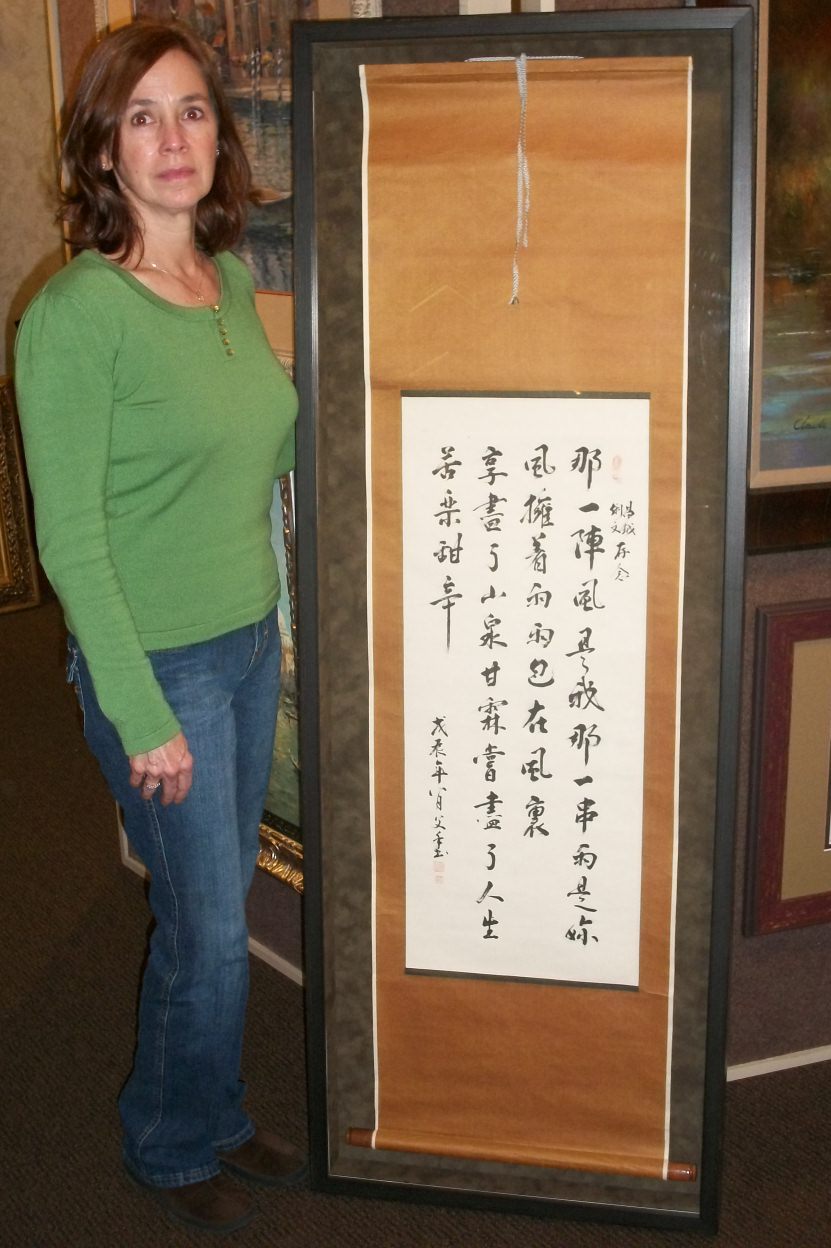 存念
那一陣風是我那一串雨是妳
風擁着雨雨包在風裏
享盡了小泉甘霖嘗盡了人生
苦樂甜辛
戊辰年八月父